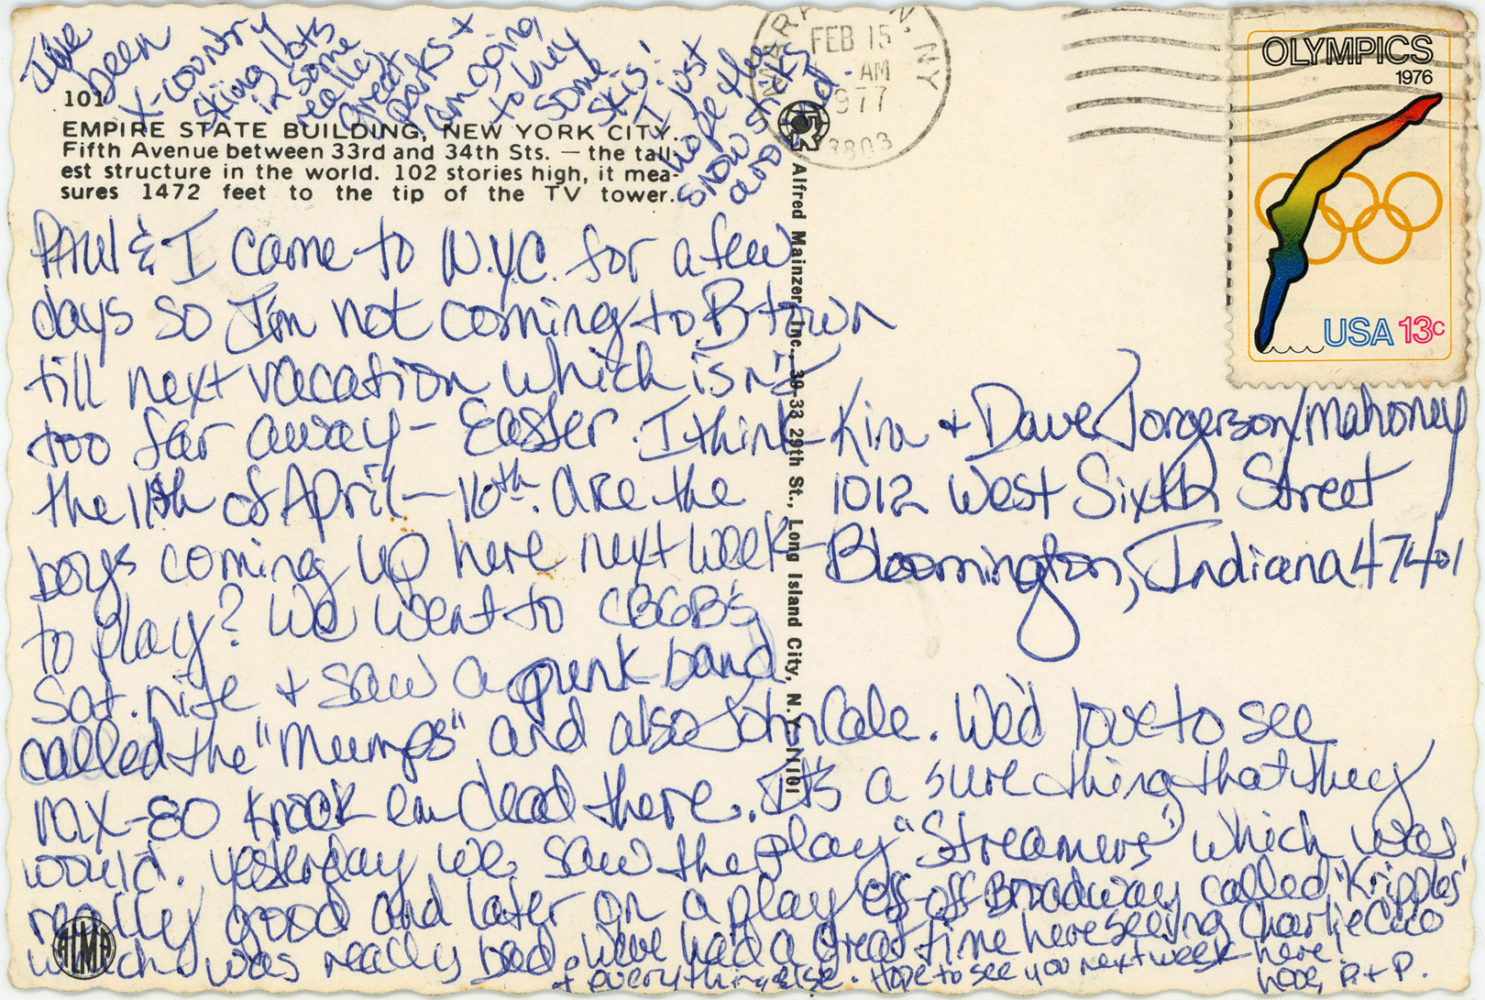 I've been
x-country
skiing lots
in some
really
great
parks +
am going
to buy
some
skis!
I just
hope the
snow sticks
around.
101
EMPIRE STATE BUILDING, NEW YORK CITY.
Fifth Avenue between 33rd and 34th Sts. — the tall-
est structure in the world. 102 stories high, it mea-
sures 1472 feet to the tip of the TV tower.
Paul & I came to N.Y.C. for a few
days so I'm not coming to B-town
till next vacation which isn't
too far away - Easter. I think
the 11th of April - 16th. Are the
boys coming up here next week
to play? We went to CBGB's
Sat. nite + saw a punk band
called the "Mumps" and also John Cale. We'd love to see
MX-80 knock em dead there. It's a sure thing that they
would. Yesterday we saw the play "Streamers" which was
really good and later on a play off-off Broadway called "Kripples"
which was really bad. We've had a great time here seeing Charlie Coco
+ everything else. Hope to see you next week here!
love, P. + P.
ALMA
Alfred Mainzer, Inc., 39-33 29th St., Long Island City, N.Y. 11101
FEB 15
AM
1977
NY
OLYMPICS
1976
USA 13c
Kim + Dave Jorgerson/Mahoney
1012 West Sixth Street
Bloomington, Indiana 47401